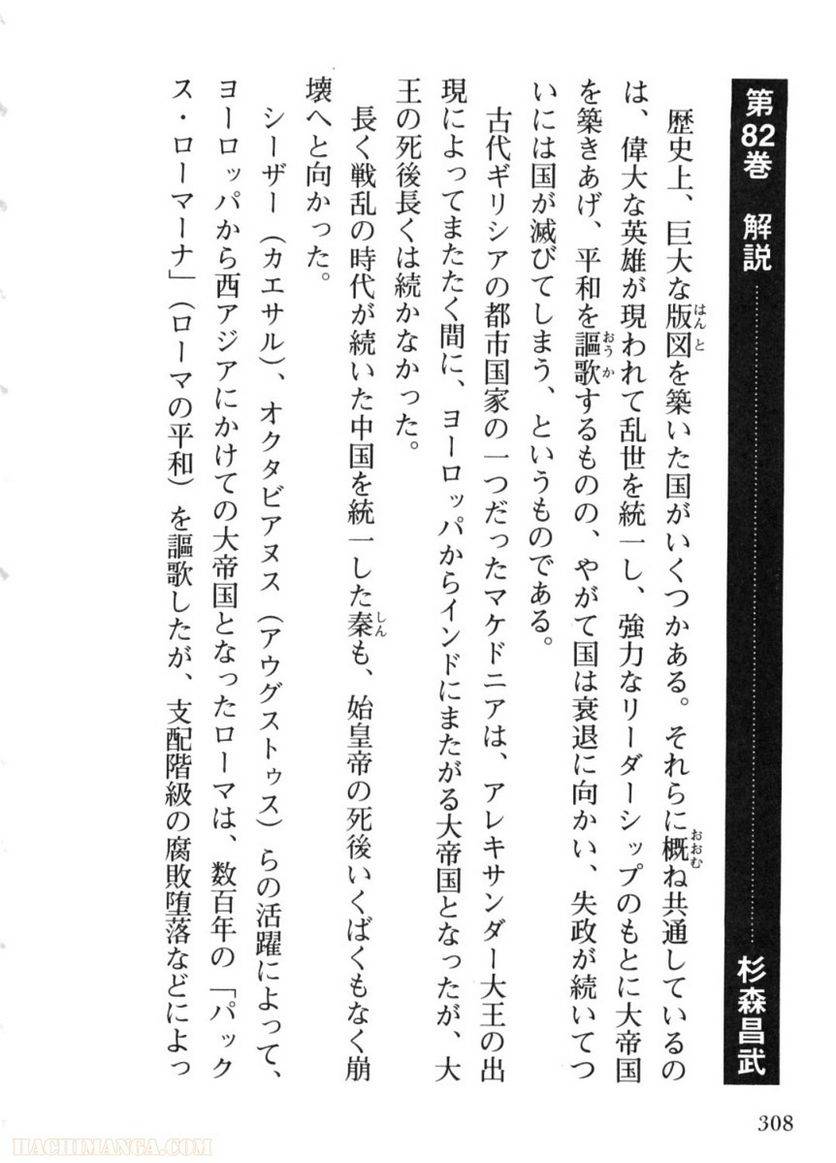 第82巻　解説………………………………杉森昌武
歴史上、巨大な版図を築いた国がいくつかある。それらに概ね共通しているの
は、偉大な英雄が現われて乱世を統一し、強力なリーダーシップのもとに大帝国
を築きあげ、平和を謳歌するものの、やがて国は衰退に向かい、失政が続いてつ
いには国が滅びてしまう、というものである。
古代ギリシアの都市国家の一つだったマケドニアは、アレキサンダー大王の出
現によってまたたく間に、ヨーロッパからインドにまたがる大帝国となったが、大
王の死後長くは続かなかった。
長く戦乱の時代が続いた中国を統一した秦も、始皇帝の死後いくばくもなく崩
壊へと向かった。
シーザー（カエサル）、オクタビアヌス（アウグストゥス）らの活躍によって、
ヨーロッパから西アジアにかけての大帝国となったローマは、数百年の「パック
ス・ローマーナ」（ローマの平和）を謳歌したが、支配階級の腐敗堕落などによっ
308
HACHIMANGA.COM